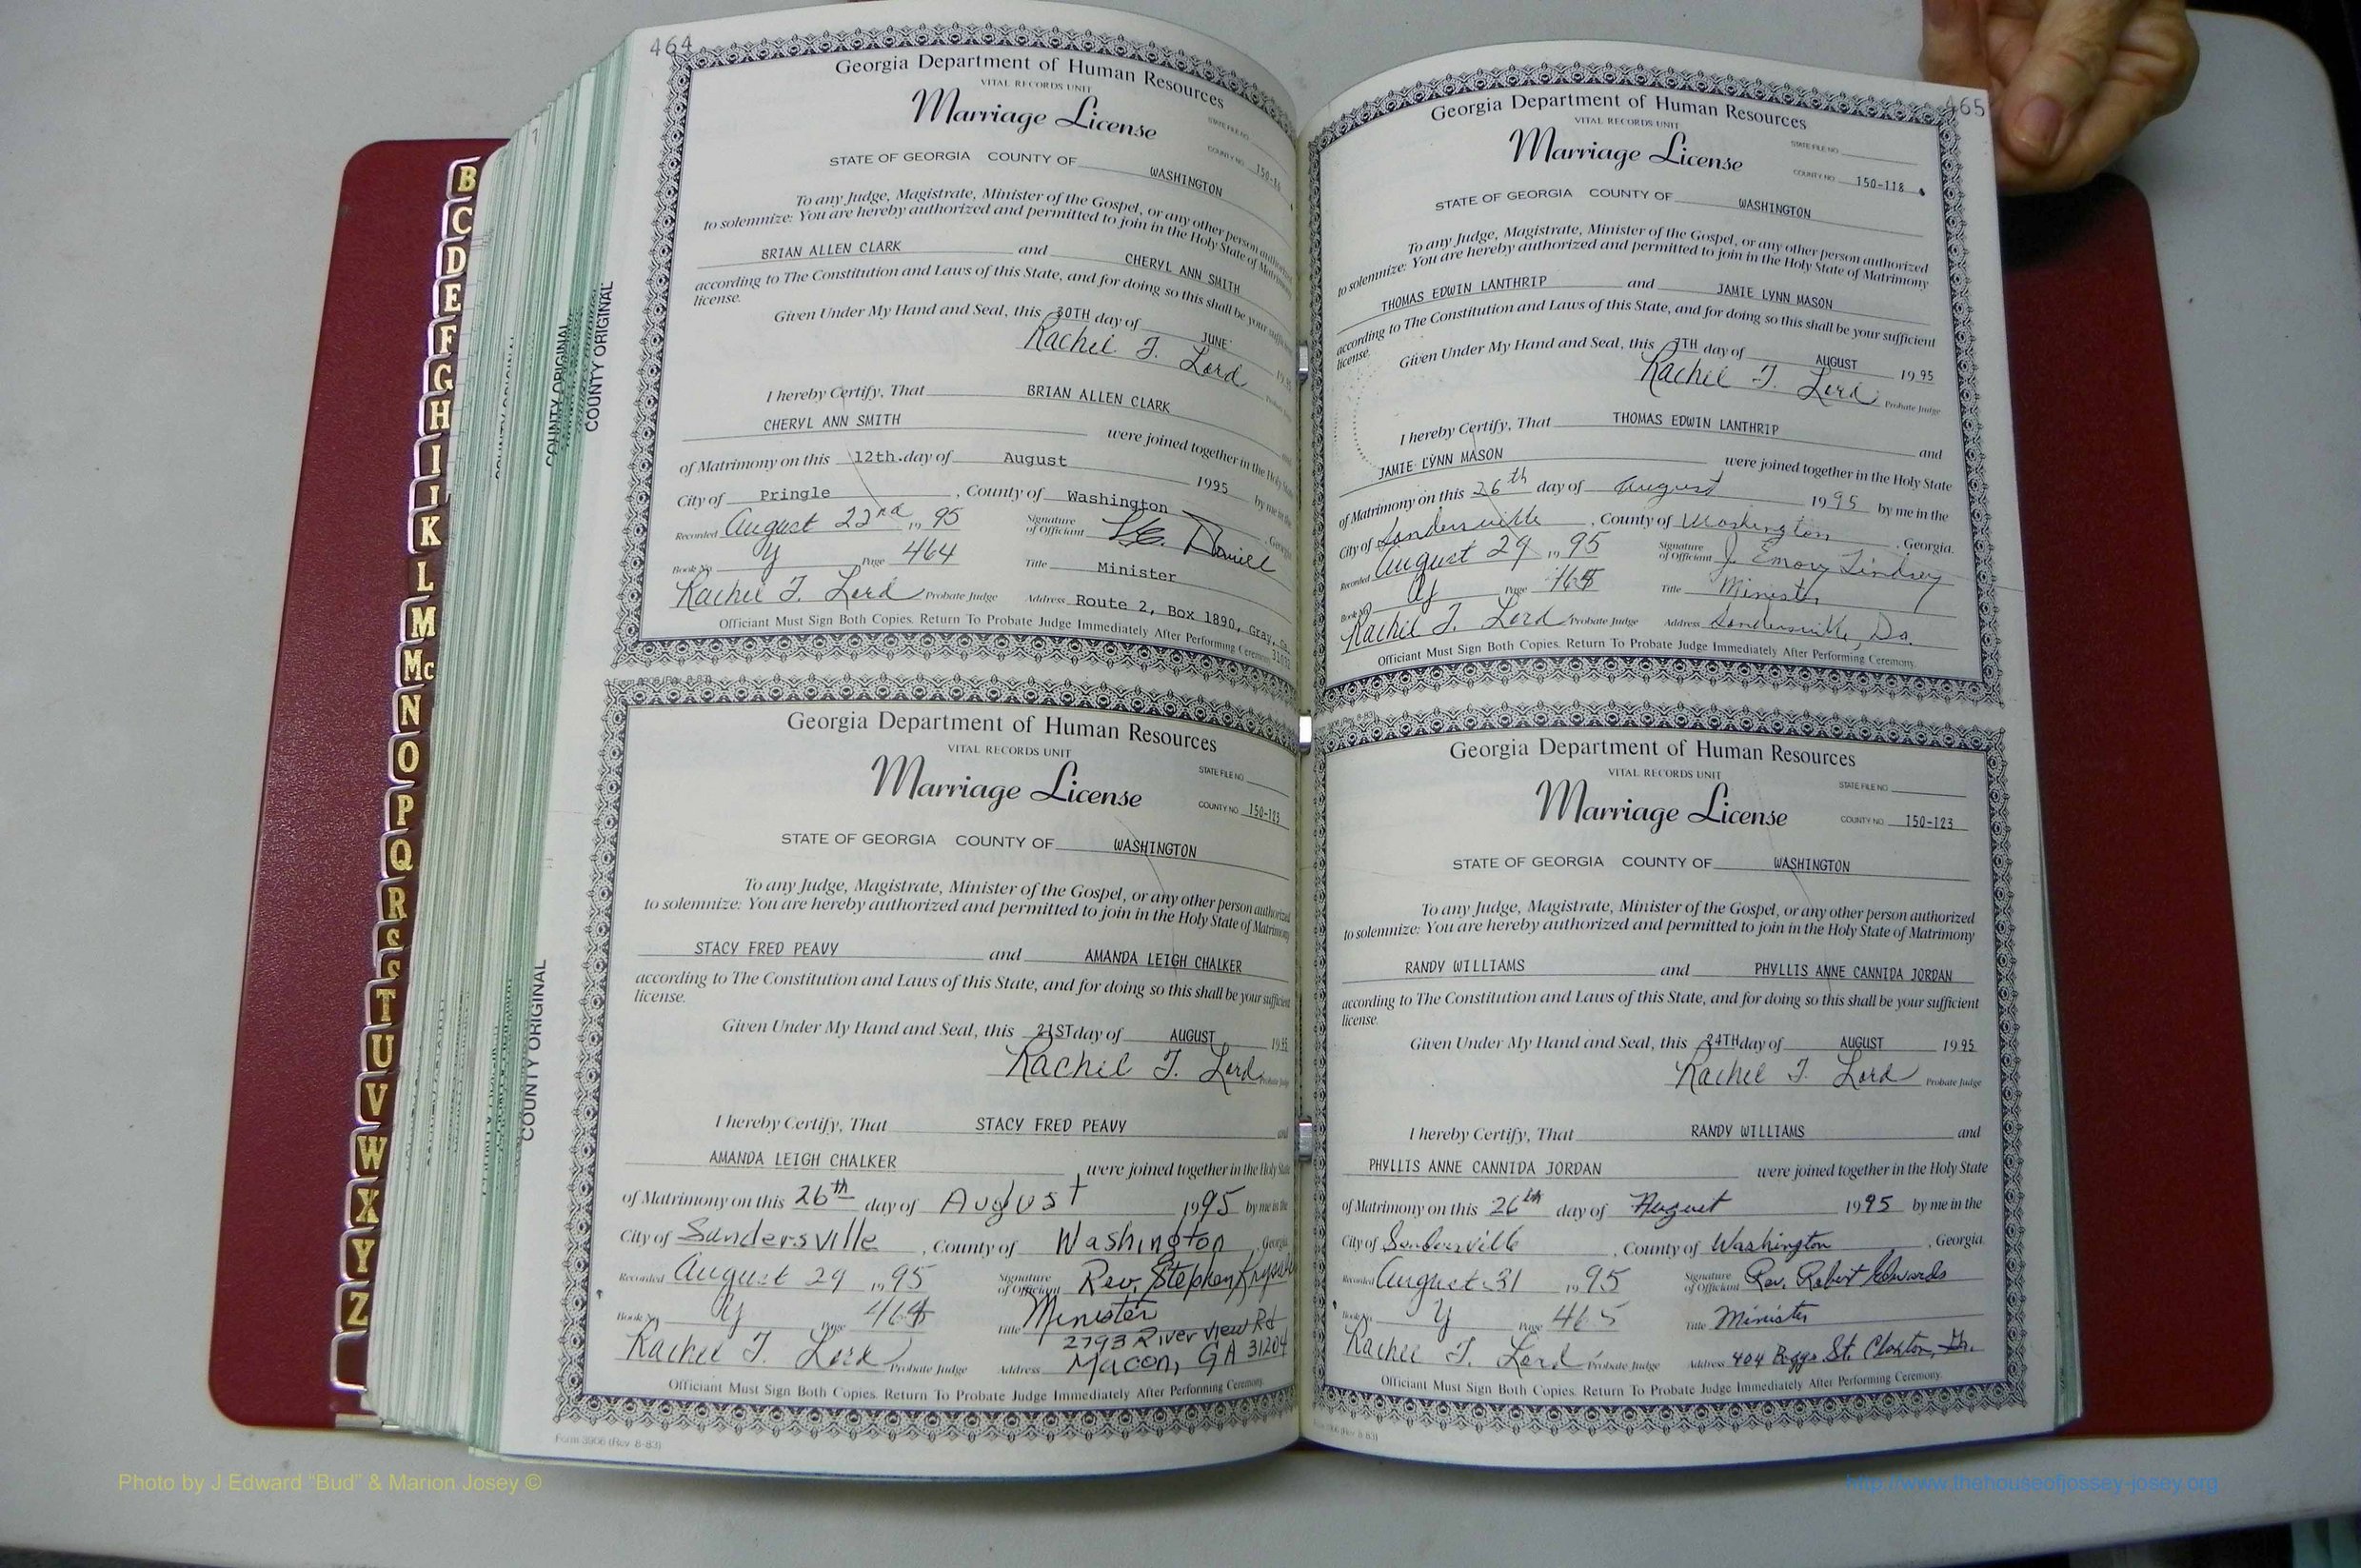 464
Georgia Department of Human Resources
VITAL RECORDS UNIT
Marriage License
STATE FILE NO.
COUNTY NO.
STATE OF GEORGIA COUNTY OF WASHINGTON
To any Judge, Magistrate, Minister of the Gospel, or any other person authorized
to solemnize: You are hereby authorized and permitted to join in the Holy State of Matrimony
BRIAN ALLEN CLARK and CHERYL ANN SMITH
according to The Constitution and Laws of this State, and for doing so this shall be your sufficient
license.
Given Under My Hand and Seal, this 30TH day of JUNE
Rachel T. Lord
I hereby Certify, That BRIAN ALLEN CLARK and
CHERYL ANN SMITH were joined together in the Holy State
of Matrimony on this 12th. day of August 1995 by me in the
City of Pringle, County of Washington, Georgia
Recorded August 22nd, 1995 Signature of Officiant
Book No. Y Page 464 Title Minister
Rachel T. Lord Probate Judge Address Route 2, Box 1890, Gray, Ga.
Officiant Must Sign Both Copies. Return To Probate Judge Immediately After Performing Ceremony
Georgia Department of Human Resources
VITAL RECORDS UNIT
Marriage License
STATE FILE NO.
COUNTY NO.
STATE OF GEORGIA COUNTY OF WASHINGTON
To any Judge, Magistrate, Minister of the Gospel, or any other person authorized
to solemnize: You are hereby authorized and permitted to join in the Holy State of Matrimony
STACY FRED PEAVY and AMANDA LEIGH CHALKER
according to The Constitution and Laws of this State, and for doing so this shall be your sufficient
license.
Given Under My Hand and Seal, this 21ST day of AUGUST 1995
Rachel T. Lord Probate Judge
I hereby Certify, That STACY FRED PEAVY and
AMANDA LEIGH CHALKER were joined together in the Holy State
of Matrimony on this 26th day of August 1995 by me in the
City of Sandersville, County of Washington, Georgia
Recorded August 29, 1995 Signature of Officiant Rev. Stephen
Book No. Y Page 464 Title Minister
2793 River View Rd
Rachel T. Lord Probate Judge Address Macon, GA 31204
Officiant Must Sign Both Copies. Return To Probate Judge Immediately After Performing Ceremony.
Form 3906 (Rev. 8-83)
465
Georgia Department of Human Resources
VITAL RECORDS UNIT
Marriage License
STATE FILE NO.
COUNTY NO. 150-118
STATE OF GEORGIA COUNTY OF WASHINGTON
To any Judge, Magistrate, Minister of the Gospel, or any other person authorized
to solemnize: You are hereby authorized and permitted to join in the Holy State of Matrimony
THOMAS EDWIN LANTHRIP and JAMIE LYNN MASON
according to The Constitution and Laws of this State, and for doing so this shall be your sufficient
license.
Given Under My Hand and Seal, this 7TH day of AUGUST 1995
Rachel T. Lord Probate Judge
I hereby Certify, That THOMAS EDWIN LANTHRIP and
JAMIE LYNN MASON were joined together in the Holy State
of Matrimony on this 26th day of August 1995 by me in the
City of Sandersville, County of Washington, Georgia.
Recorded August 29, 1995 Signature of Officiant J. Emory Lindsey
Book No. Y Page 465 Title Minister
Rachel T. Lord Probate Judge Address Sandersville, Ga.
Officiant Must Sign Both Copies. Return To Probate Judge Immediately After Performing Ceremony.
Georgia Department of Human Resources
VITAL RECORDS UNIT
Marriage License
STATE FILE NO.
COUNTY NO. 150-123
STATE OF GEORGIA COUNTY OF WASHINGTON
To any Judge, Magistrate, Minister of the Gospel, or any other person authorized
to solemnize: You are hereby authorized and permitted to join in the Holy State of Matrimony
RANDY WILLIAMS and PHYLLIS ANNE CANNIDA JORDAN
according to The Constitution and Laws of this State, and for doing so this shall be your sufficient
license.
Given Under My Hand and Seal, this 24TH day of AUGUST 1995
Rachel T. Lord Probate Judge
I hereby Certify, That RANDY WILLIAMS and
PHYLLIS ANNE CANNIDA JORDAN were joined together in the Holy State
of Matrimony on this 26th day of August 1995 by me in the
City of Sandersville, County of Washington, Georgia.
Recorded August 31, 1995 Signature of Officiant Rev. Robert Edwards
Book No. Y Page 465 Title Minister
Rachel T. Lord Probate Judge Address 404 Boggs St. Claxton, Ga.
Officiant Must Sign Both Copies. Return To Probate Judge Immediately After Performing Ceremony.
COUNTY ORIGINAL
COUNTY ORIGINAL
COUNTY ORIGINAL
B
C
D
E
F
G
H
I
J
K
L
M
Mc
N
O
P
Q
R
S
S
T
U
V
W
X
Y
Z
Photo by J Edward “Bud” & Marion Josey ©
http://www.thehouseofjossey-josey.org